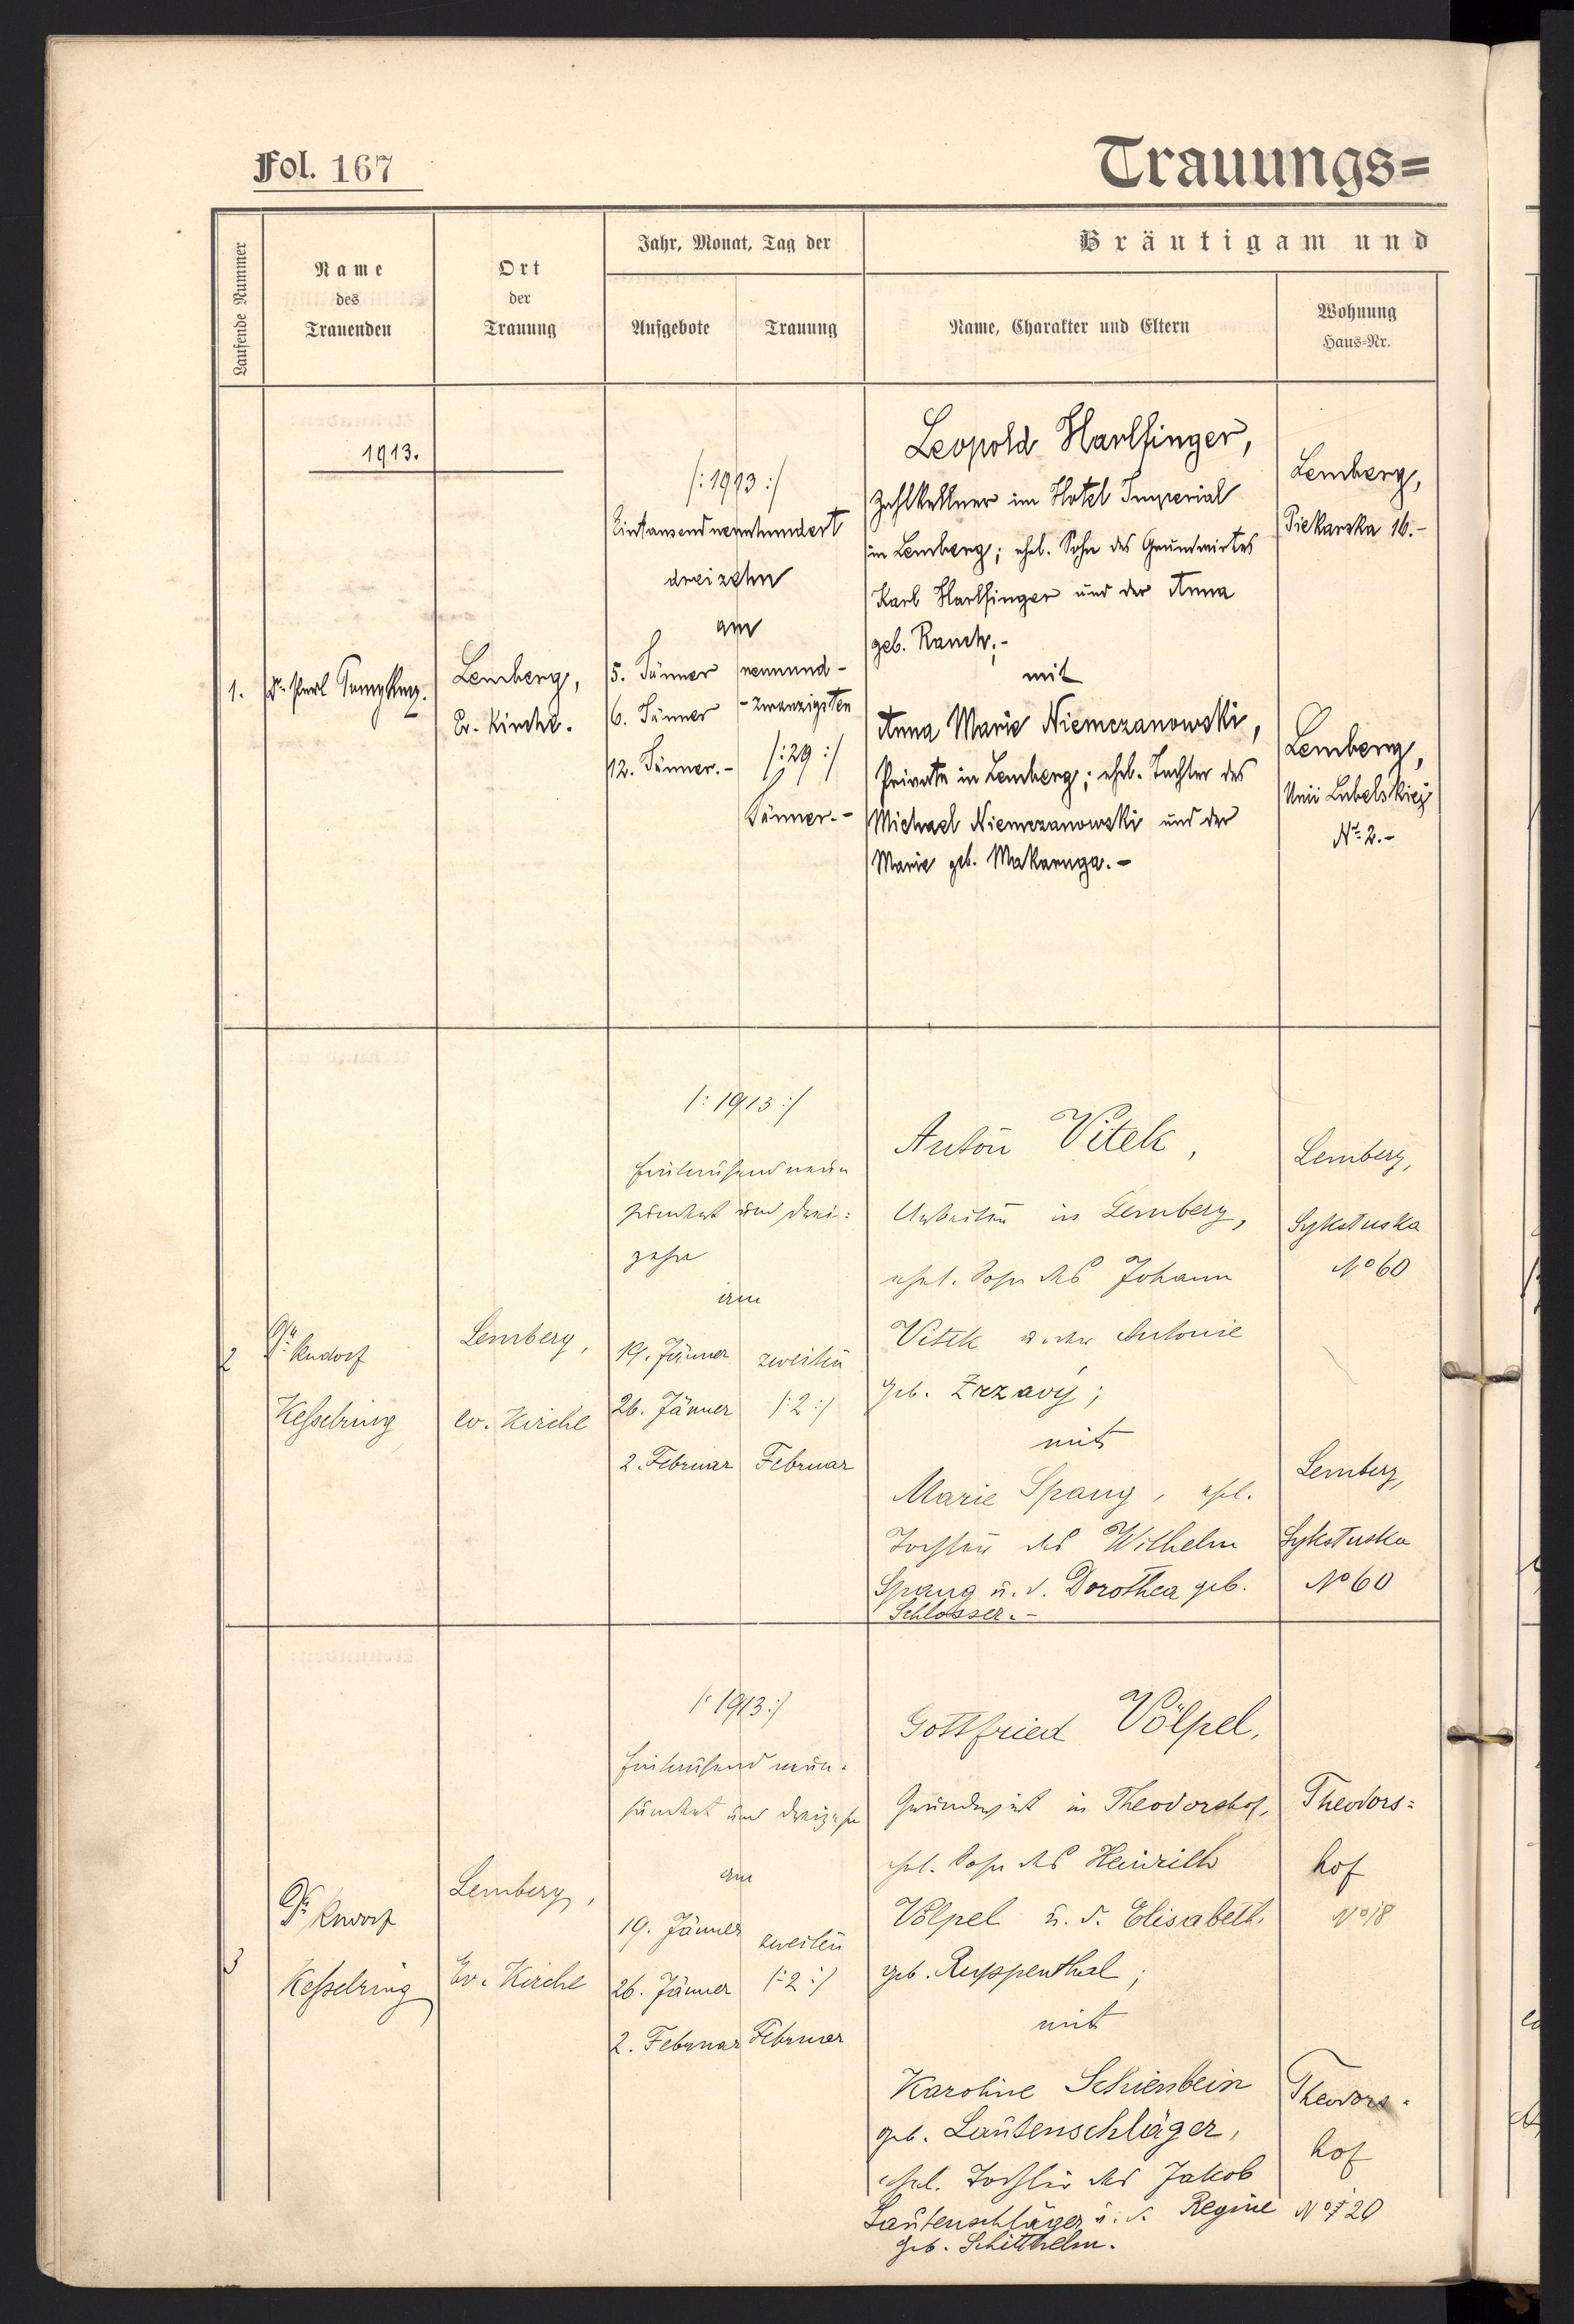 Fol. 167
Trauungs=
Laufende Nummer
Name
des
Trauenden
Ort
der
Trauung
Jahr, Monat, Tag der
Aufgebote
Trauung
Bräutigam und
Name, Charakter und Eltern
Wohnung
Haus-Nr.
1913.
1.
Dr.
Lemberg,
Ev. Kirche.
/: 1913 :/
Eintausendneunhundert
dreizehn
am
5. Jänner
6. Jänner
12. Jänner.-
neunund-
-zwanzigsten
/: 29 :/
Jänner.-
Leopold Harlfinger,
Zahlkellner im Hotel Imperial
in Lemberg; ehel. Sohn des Grundwirtes
Karl Harlfinger und der Anna
geb. Rauch;-
mit
Anna Marie Niemczanowski,
Private in Lemberg; ehel. Tochter des
Michael Niemczanowski und der
Marie geb. Makaruga.-
Lemberg,
Piekarska 16.-
Lemberg,
Unii Lubelskiej
No 2.-
2
Dr. Rudolf
Kesselring
Lemberg,
ev. Kirche
/: 1913 :/
Eintausendneun
hundert und drei=
zehn
am
19. Jänner
26. Jänner
2. Februar
zweiten
/: 2 :/
Februar
Anton Vitek,
Arbeiter in Lemberg,
ehel. Sohn des Johann
Vitek u. der Antonie
geb. Zrzavý;
mit
Marie Spang, ehel.
Tochter des Wilhelm
Spang u. d. Dorothea geb.
Schlosser.-
Lemberg,
Sykstuska
No 60
Lemberg,
Sykstuska
No 60
3
Dr. Rudolf
Kesselring
Lemberg,
Ev. Kirche
/: 1913 :/
Eintausend neun-
hundert und dreizehn
am
19. Jänner
26. Jänner
2. Februar
zweiten
/: 2 :/
Februar
Gottfried Völpel,
Grundwirt in Theodorshof,
ehel. Sohn des Heinrich
Völpel u. d. Elisabeth,
geb. Ruppenthal;
mit
Karoline Schienbein
geb. Lautenschläger,
ehel. Tochter des Jakob
Lautenschläger u. d. Regine
geb. Schitthelm.
Theodors=
hof
No 18
Theodors=
hof
No 20